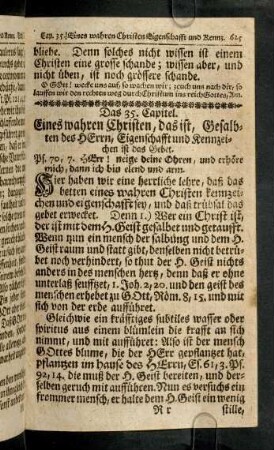 Cap. 35. Eines wahren Christen Eigenschafft und Kennz. 625
bliebe. Denn solches nicht wissen ist einem
Christen eine grosse schande; wissen aber, und
nicht üben, ist noch grössere schande.
O Gott! wecke uns auf, so wachen wir; zeuch uns nach dir, so
lauffen wir den rechten weg durch Christum ins reich Gottes, Am.
Das 35. Capitel.
Eines wahren Christen, das ist, Gesalb-
ten des HErrn, Eigenschafft und Kennzei-
chen ist das Gebet.
Ps. 70, 7. HErr! neige deine Ohren, und erhöre
mich, dann ich bin elend und arm.
Hier haben wir eine herrliche lehre, daß das
betten eines wahren Christen kennzei-
chen und eigenschafft sey, und daß trübsal das
gebet erwecket. Denn 1.) Wer ein Christ ist,
der ist mit dem H. Geist gesalbet und getaufft.
Wenn nun ein mensch der salbung und dem H.
Geist raum und statt gibt, denselben nicht betrü-
bet noch verhindert, so thut der H. Geist nichts
anders in des menschen hertz, denn daß er ohne
unterlaß seufftzet, 1. Joh. 2, 20. und den geist des
menschen erhebet zu GOtt, Röm. 8, 15. und mit
sich von der erde aufführet.
Gleichwie ein kräfftiges subtiles wasser oder
spiritus aus einem blümlein die krafft an sich
nimmt, und mit aufführet: Also ist der mensch
GOttes blume, die der HErr gepflantzet hat,
pflantzen im hause des HErrn, Es. 61, 3. Ps.
92, 14. die muß der H. Geist bereiten, und der-
selben geruch mit aufführen. Nun es versuchs ein
frommer mensch, er halte dem H. Geist ein wenig
R r stille,